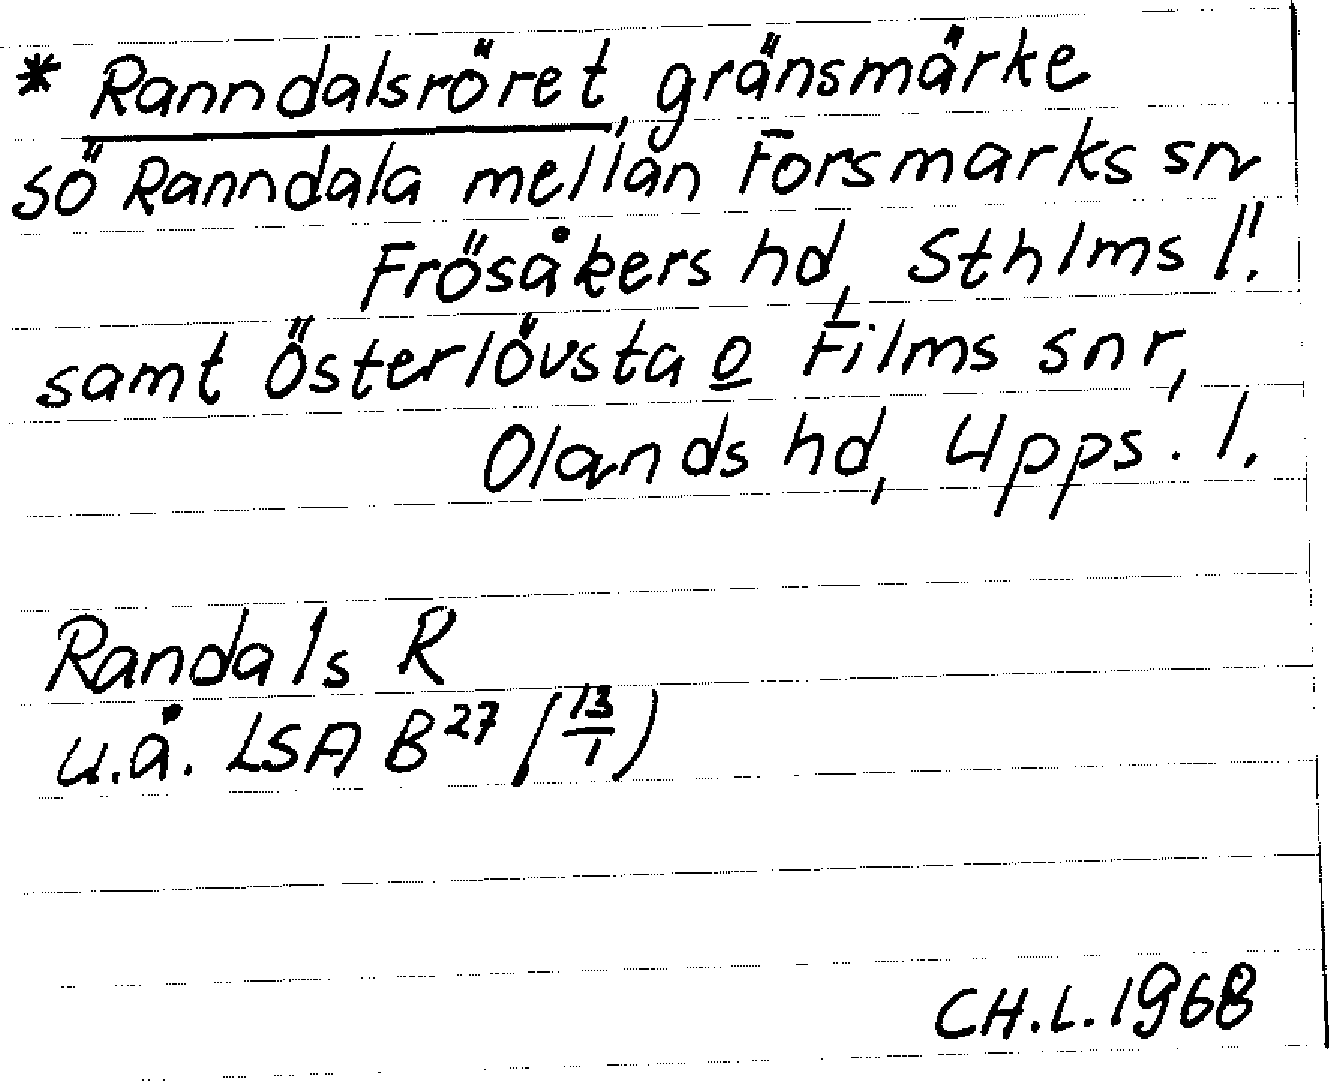 * Ranndalsröret, gränsmärke
sö Ranndala mellan Forsmarks sn
Frösåkers hd, Sthlms l!
samt Österlövsta o Films snr,
Olands hd, Upps. l.
Randals R
u.å. LSA B 27 (13/1)
CH.L. 1968